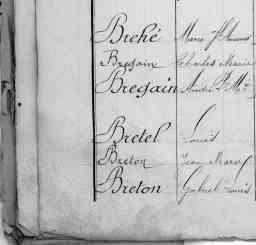 Brehé Marie
Bregain Charles Marie
Bregain André
Bretel Louis
Breton Jean Marie
Breton Gabriel Louis